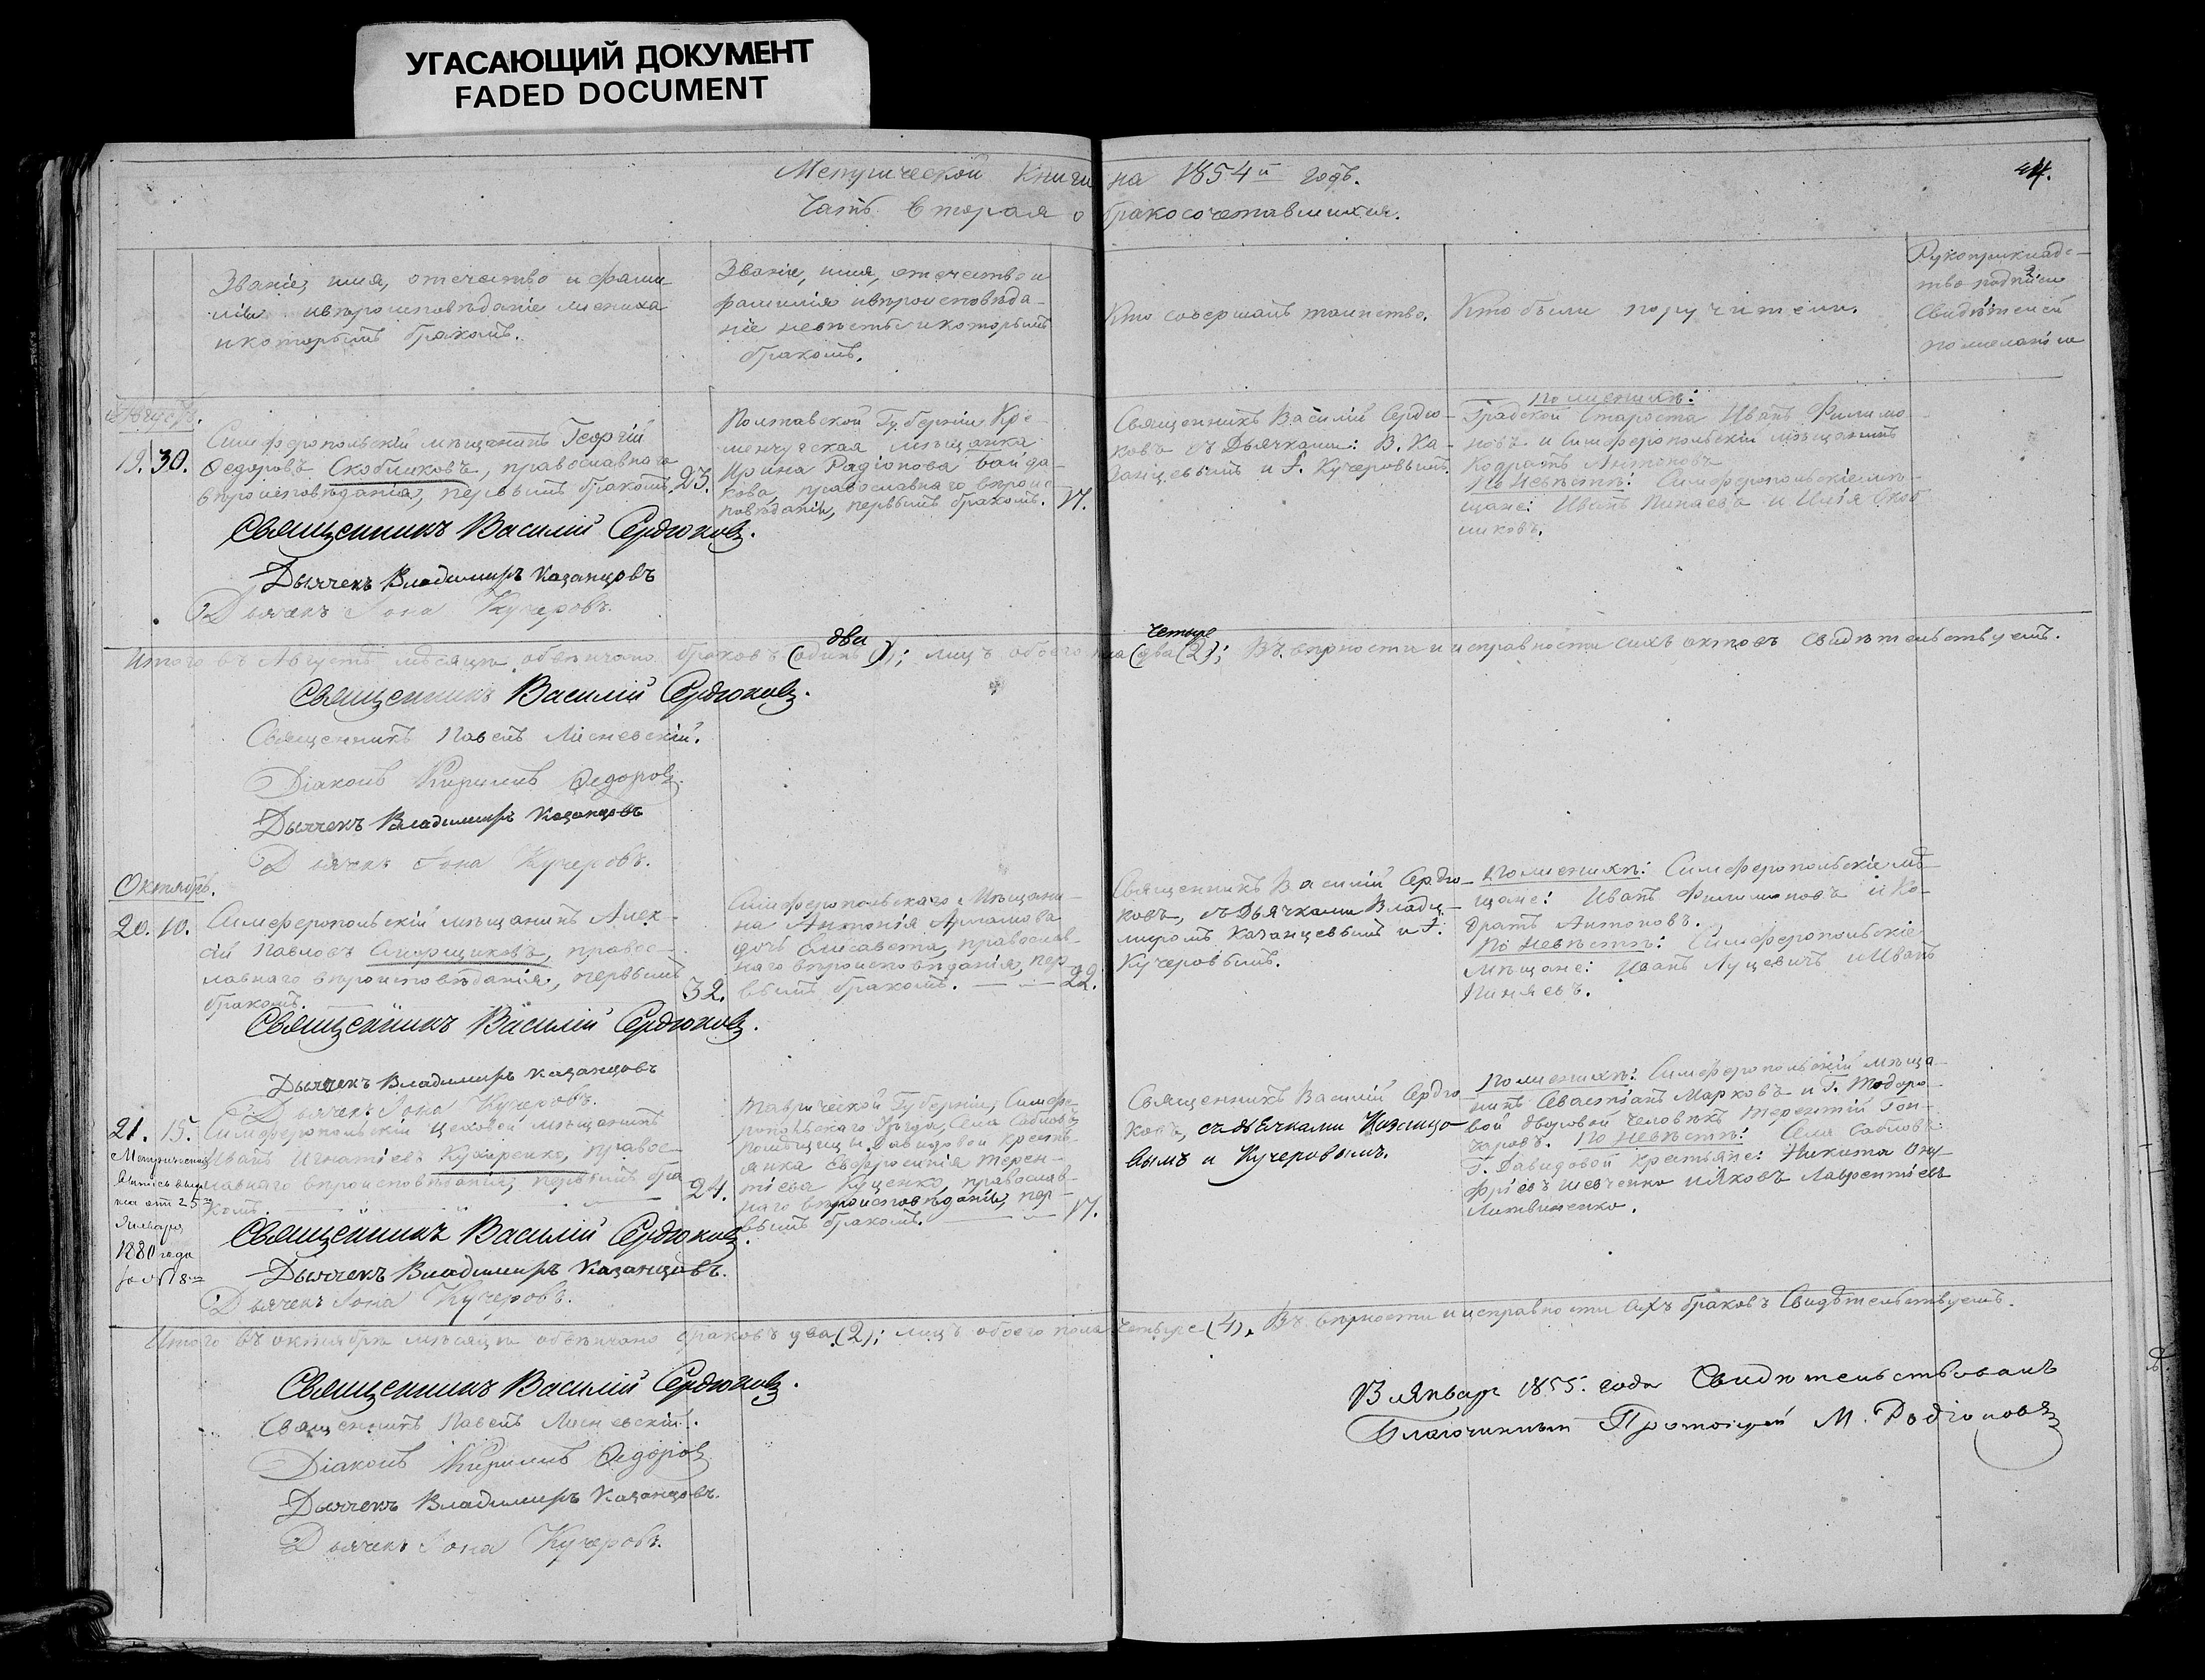 УГАСАЮЩИЙ ДОКУМЕНТ
FADED DOCUMENT
Метрической Книги на 1854й годъ.
44.
Часть вторая о бракосочетавшихся.
Званіе, имя, отечество и фами-
лія и вѣроисповѣданіе жениха
и которымъ бракомъ.
Званіе, имя, отечество и
фамилія и вѣроисповѣда-
ніе невѣсты и которымъ
бракомъ.
Кто совершалъ таинство.
Кто были поручители.
Рукоприкладс-
тво
свидѣтелей
по желанію
Августъ.
19. 30.
Симферопольскій мѣщанинъ Георгій
Ѳедоровъ Скобликовъ, православнаго
вѣроисповѣданія, первымъ бракомъ. 23.
Полтавской Губерніи Кре-
менчугская мѣщанка
Ирина Радіонова Байда-
кова, православнаго вѣроис-
повѣданія, первымъ бракомъ. 17.
Священникъ Василій Сердю-
ковъ съ Дьячками: В. Ка-
занцевымъ и І. Кучеровымъ.
По женихѣ:
Градской Староста Иванъ Филимо-
новъ и Симферопольскій мѣщанинъ
Кодратъ Антоновъ
По невѣстѣ: Симферопольскіе мѣ-
щане: Иванъ Пиняевъ и Илія Скоб
ликовъ.
Священникъ Василій Сердюковъ.
Дьячекъ Владимиръ Казанцовъ
Дьячекъ Іона Кучеровъ.
два
четыре
Итого въ Августѣ мѣсяцѣ обвѣнчано браковъ (одинъ); лицъ обоего пола (два (2); Въ вѣрности и исправности сихъ актовъ свидѣтельствуемъ.
Священникъ Василій Сердюковъ.
Священникъ Павелъ Лисневскій.
Діаконъ Кириллъ Ѳедоровъ.
Дьячекъ Владимиръ Казанцовъ
Дьячекъ Іона Кучеровъ.
Октябрь.
20. 10.
Симферопольскій мѣщанинъ Алек-
сій Павловъ православнаго вѣроисповѣданія, первымъ
бракомъ. 32.
Симферопольскаго мѣщани-
на Антонія
дочь Елисавета, православ-
наго вѣроисповѣданія, пер-
вымъ бракомъ. 22.
Священникъ Василій Сердю-
ковъ, съ Дьячками Влади-
миромъ Казанцевымъ и І.
Кучеровымъ.
По женихѣ: Симферопольскіе мѣ-
щане: Иванъ Филимоновъ и Ко-
дратъ Антоновъ.
По невѣстѣ: Симферопольскіе
мѣщане: Иванъ Луцевичъ и Иванъ
Пиняевъ.
Священникъ Василій Сердюковъ.
Дьячекъ Владимиръ Казанцовъ
Дьячекъ Іона Кучеровъ.
21. 15.
Симферопольскій цеховой мѣщанинъ
Иванъ Игнатіевъ православнаго вѣроисповѣданія, первымъ бра-
комъ. 24.
Метрическая
выпись выда
на отъ 25го
Января
1880 года
за № 8м
Таврической Губерніи, Симфе-
ропольскаго уѣзда, села Сабловъ
помѣщицы Давидовой крестья-
янка Евфросинія Терен-
тіева Куценко, православ-
наго вѣроисповѣданія, пер-
вымъ бракомъ. 17.
Священникъ Василій Сердю
ковъ, съ дьячками Казанцо-
вымъ и Кучеровымъ.
По женихѣ: Симферопольскій мѣща-
нинъ Севастіанъ Марковъ и Г.
вой дворовой человѣкъ Терентій Гон-
чаровъ. По невѣстѣ: Села Саблова
Г. Давидовой крестьяне: Никита Ону-
фріевъ Шевченко и Яковъ Лаврентіевъ
Литвиненко.
Священникъ Василій Сердюковъ.
Дьячекъ Владимиръ Казанцовъ.
Дьячекъ Іона Кучеровъ.
Итого въ октябрѣ мѣсяцѣ обвѣнчано браковъ два (2); лицъ обоего пола четыре (4). Въ вѣрности и исправности сихъ браковъ свидѣтельствуемъ.
Священникъ Василій Сердюковъ.
Священникъ Павелъ Лисневскій.
Діаконъ Кириллъ Ѳедоровъ
Дьячекъ Владимиръ Казанцовъ.
Дьячекъ Іона Кучеровъ.
В январѣ 1855. года Свидѣтельствовалъ
Благочинный Протоіерей М. Родіоновъ